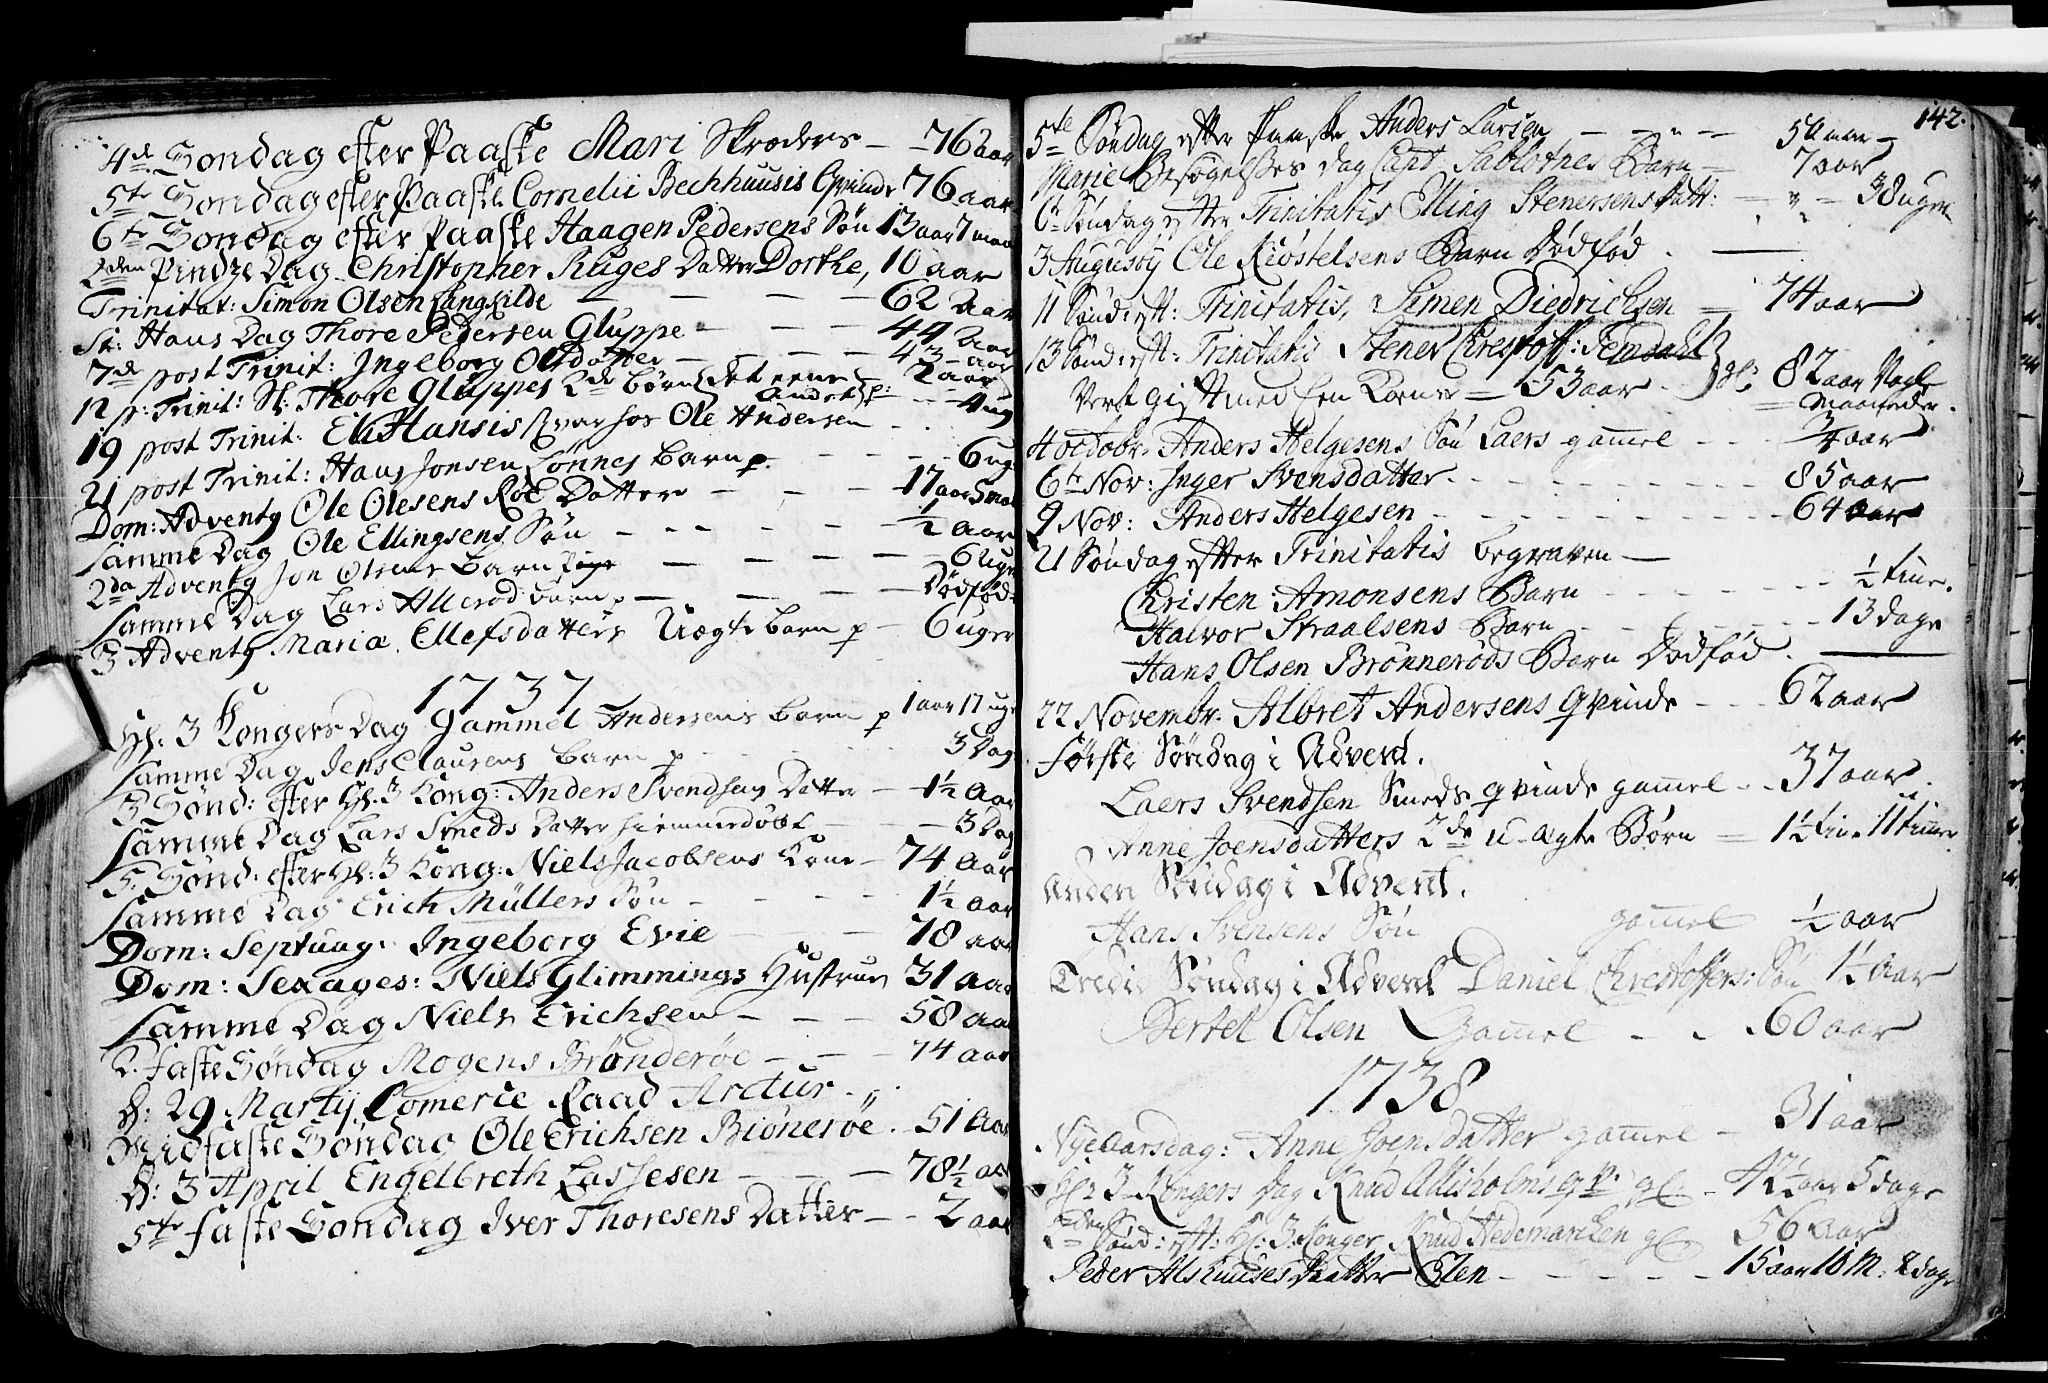 4de Søndag efter Paaske Mari Skræders — 76 aar
5te Søndag efter Paaske Cornelii Bechhuusis Qvinde 76 aar
6te Søndag efter Paaske Haagen Pedersens Søn 13 aar 7 maan
2den Pindze Dag Christopher Ruges Datter Dorthe, 10 aar
Trinitat: Simon Olsen Langkilde — — — — 62 Aar
St: Hans Dag Thore Pedersen Gluppe — — — 44 Aar
7de post Trinit: Ingeborg Olsdatter — — — 43 aar
12 p: Trinit: Sl: Thore Gluppes 2de Børn det eene p: 2 aar
Andet 4 ug
19 post Trinit: Hansis var hos Ole Andersen
21 post Trinit: Hans Jonsen Lønnes Barn p. — 6 ug
Dom: Adventy Ole Olesens Røe Datter — — 17 aar 5 maa
samme Dag Ole Ellingsens Søn — — — ½ aar
2da Adventy Jon Olsens Barn Pige — — — 6 Uger
samme Dag Lars Allerød barn p — — — Dødfød
3 Adventy Maria Ellefsdatters Uægte barn p — 6 uger
1737
Hl: 3 Kongers Dag Gammel Andersens Barn p 1 aar 17 uge
samme Dag Jens Clausens barn p — 3 Dag
3 Sønd: efter Hl. 3 Kong: Anders Svendsens Datter — 1½ Aar
samme Dag Lars Smeds Datter hiemmedøbt — — 3 Dag
5. Sønd: efter Hl: 3 Kong: Niels Jacobsens Kone — 74 Aar
samme Dag Erich Müllers Søn — — — 1½ aar
Dom: Septuag: Ingeborg Evie — — 78 aar
Dom: Sexages: Niels Glimmings Hustrue 31 Aar
samme Dag Niels Erichsen — — — 58 aar
2. faste Søndag Mogens Brønderøe — — 74 aar
d: 29 Martij Comerce Raad Arctur
Midfaste Søndag Ole Erichsen Biønerøe. 51 Aar
d: 3 April Engelbreth Lassesen — — — 78½ aar
5te faste Søndag Iver Thoresens Datter — 2 aar
142.
5te Søndag efter Paaske Anders Larsen — — — 50 aar
Marie Besøgelses dag Capt Sablotnes Barn — 7 aar
6te Søndag efter Trinitatis Elling Stenersens Datt: — 3 Uger
3 Augusty Ole Kiøstelsens Barn Dødfød. —
11 Sønd: eft: Trinitatis, Simen Diedrichsen — 74 aar
13 Sønd: eft: Trinitatis Stener Chrestoff: Temdahl gl: 82 aar
Verst Gift med Een Kone — 53 aar Maaneder.
4 octobr. Anders Helgesens Søn Laers gammel — ¾ aar
6te Nov: Inger Svensdatter — — — 85 aar
9 Nov: Anders Helgesen — — — 64 aar
21 Søndag efter Trinitatis begraven —
Christen Amonsens Barn — — — ½ time.
Halvor Straalsens Barn — — — 13 dage
Hans Olsen Brønnerøds Barn Dødfød. —
22 Novembr. Albret Andersens Qvinde — — 62 aar
første Søndag i Advent.
Laers Svendsen Smeds Qvinde gammel — 37 aar.
Anne Joensdatters 2de u-ægte Børn — 1½ time 11 timer
anden Søndag i Advent.
Hans Svensens Søn gammel ½ aar
Tredie Søndag i Advent Daniel Chrestoffers: Søn 1½ Aar
Bertel Olsen Gammel — — 60 aar
1738
Nyeaarsdag: Anne Joensdatter gammel — 31 aar
Hl: 3 Kongers Dag Knud Adisholms qv: gl: — 42½ aar 5 dage
2den Sønd: eft: Hl: 3 Konger Knud Hedemarken gl: 56 aar
Peder Alshuuses Datter Elen — — — 15 aar 10 M: 2 dage